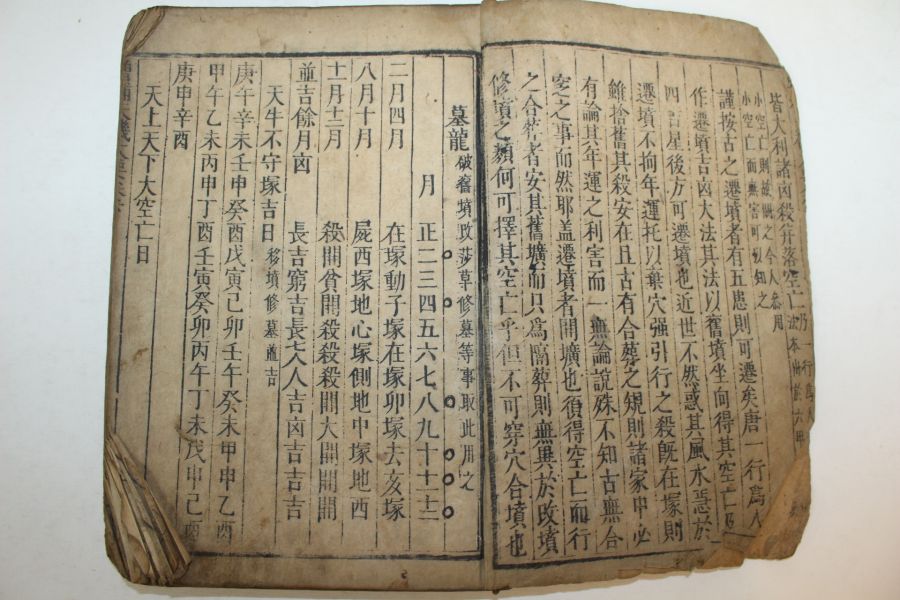 塟大利諸凶殺幷落空亡
謹按古之遷墳者有五患則可遷矣唐一行爲人
作遷墳吉凶大法其法以舊墳坐向得其空亡及
四吉星後方可遷墳也近世不然惑其風水忌於
遷墳不拘年運托以棄穴强引行之殺旣在塚則
雖捨舊其殺安在且古有合葬之規則諸家甲必
有論其年運之利害而一無論說殊不知古無合
窆之事而然耶盖遷墳者開壙也須得空亡而行
之合葬者安其舊壙而只爲隔葬則無異於改墳
修墳之類何可擇其空亡乎但不可穿穴合墳也
墓龍 破舊墳改莎草修墓等事取此用之
月 正二三四五六七八九十十一十二
二月四月 在塚動子塚在塚卯塚去亥塚
八月十月 屍西塚地心塚側地中塚地西
十一月十二月 殺開貧開殺殺殺開大開開開
並吉餘月凶 長吉窮吉長七人吉凶吉吉吉
天牛不守塚吉日 移墳修墓並吉
庚午辛未壬申癸酉戊寅己卯壬午癸未甲申乙酉
甲午乙未丙申丁酉壬寅癸卯丙午丁未戊申己酉
庚申辛酉
天上天下大空亡日